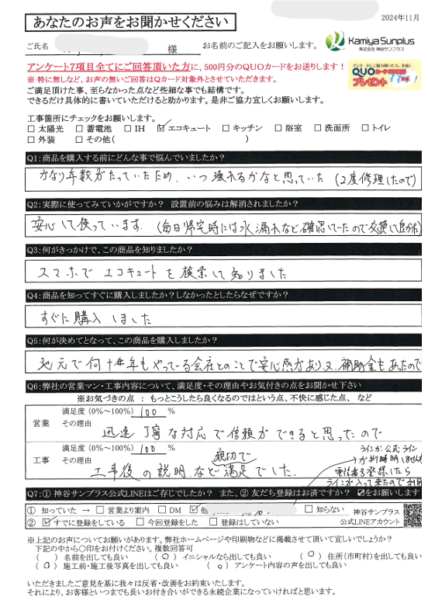 2024年11月
あなたのお声をお聞かせください
Kamiya Sunplus
株式会社 神谷サンプラス
ご氏名 様 お名前のご記入をお願いします。
アンケート7項目全てにご回答頂いた方に、500円分のQUOカードをお送りします!
※ 特に無しなど、お声の無いご回答はQカード対象外とさせていただきます。
QUOカード
プレゼント
ご満足頂けた事、至らなかった点など些細な事でも結構です。
できるだけ具体的に書いていただけると助かります。是非ご協力宜しくお願いします。
工事箇所にチェックをお願いします。
□ 太陽光 □ 蓄電池 □ IH ☑ エコキュート □ キッチン □ 浴室 □ 洗面所 □ トイレ
□ 外装 □ その他( )
Q1:商品を購入する前にどんな事で悩んでいましたか?
かなり年数がたっていたため、いつ壊れるかなと思っていた(2度修理したので)
Q2:実際に使ってみていかがですか? 設置前の悩みは解消されましたか?
安心して使っています。(毎日帰宅時には水漏れなど確認していたので交換して
Q3:何がきっかけで、この商品を知りましたか?
スマホでエコキュートを検索して知りました
Q4:商品を知ってすぐに購入しましたか?しなかったとしたらなぜですか?
すぐに購入しました
Q5:何が決めてとなって、この商品を購入しましたか?
地元で何十年もやっている会社とのことで安心感があり又、補助金もあたので
Q6:弊社の営業マン・工事内容について、満足度・その理由やお気付きの点をお聞かせ下さい
※お気づきの点 : もっとこうしたら良くなるのではという点、不快に感じた点、など
営業 満足度(0%~100%) 100 %
その理由
迅速丁寧な対応で信頼ができると思ったので
工事 満足度(0%~100%) 100 %
その理由 親切で
工事後の説明など満足でした。
Q7:① 神谷サンプラス公式LINEはご存じでしたか? また、② 友だち登録はお済ですか? ☑をお願いします
① 知っていた → □ 営業より案内 □ DM ☑ 他 □ 知らない
② ☑ すでに登録をしている □ 今回登録をした □ 登録はしていない
神谷サンプラス
公式LINEアカウント
※上記のお声についてお願いがあります。弊社ホームページや印刷物などに掲載させて頂いて宜しいでしょうか?
下記の中から○印をお付けください。複数回答可
( ) 名前を出しても良い (○) イニシャルなら出しても良い (○) 住所(市町村)を出しても良い
(○) 施工前・施工後写真を出しても良い (○) アンケート内容の声を出しても良い
いただきましたご意見を基に我々は反省・改善をお約束いたします。
それにより、お客様といつまでも長いお付き合いができる永続企業になっていければと思います。